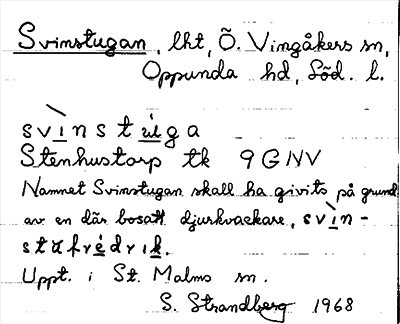 Svinstugan, lht, Ö. Vingåkers sn,
Oppunda hd, Söd. l.
svìnstúga
Stenhustorp tk 9GNV
Namnet Svinstugan skall ha givits på grund
av en där bosatt djurkvackare, svìn-
stafrédrik.
Uppt. i St. Malms sn.
S. Strandberg 1968